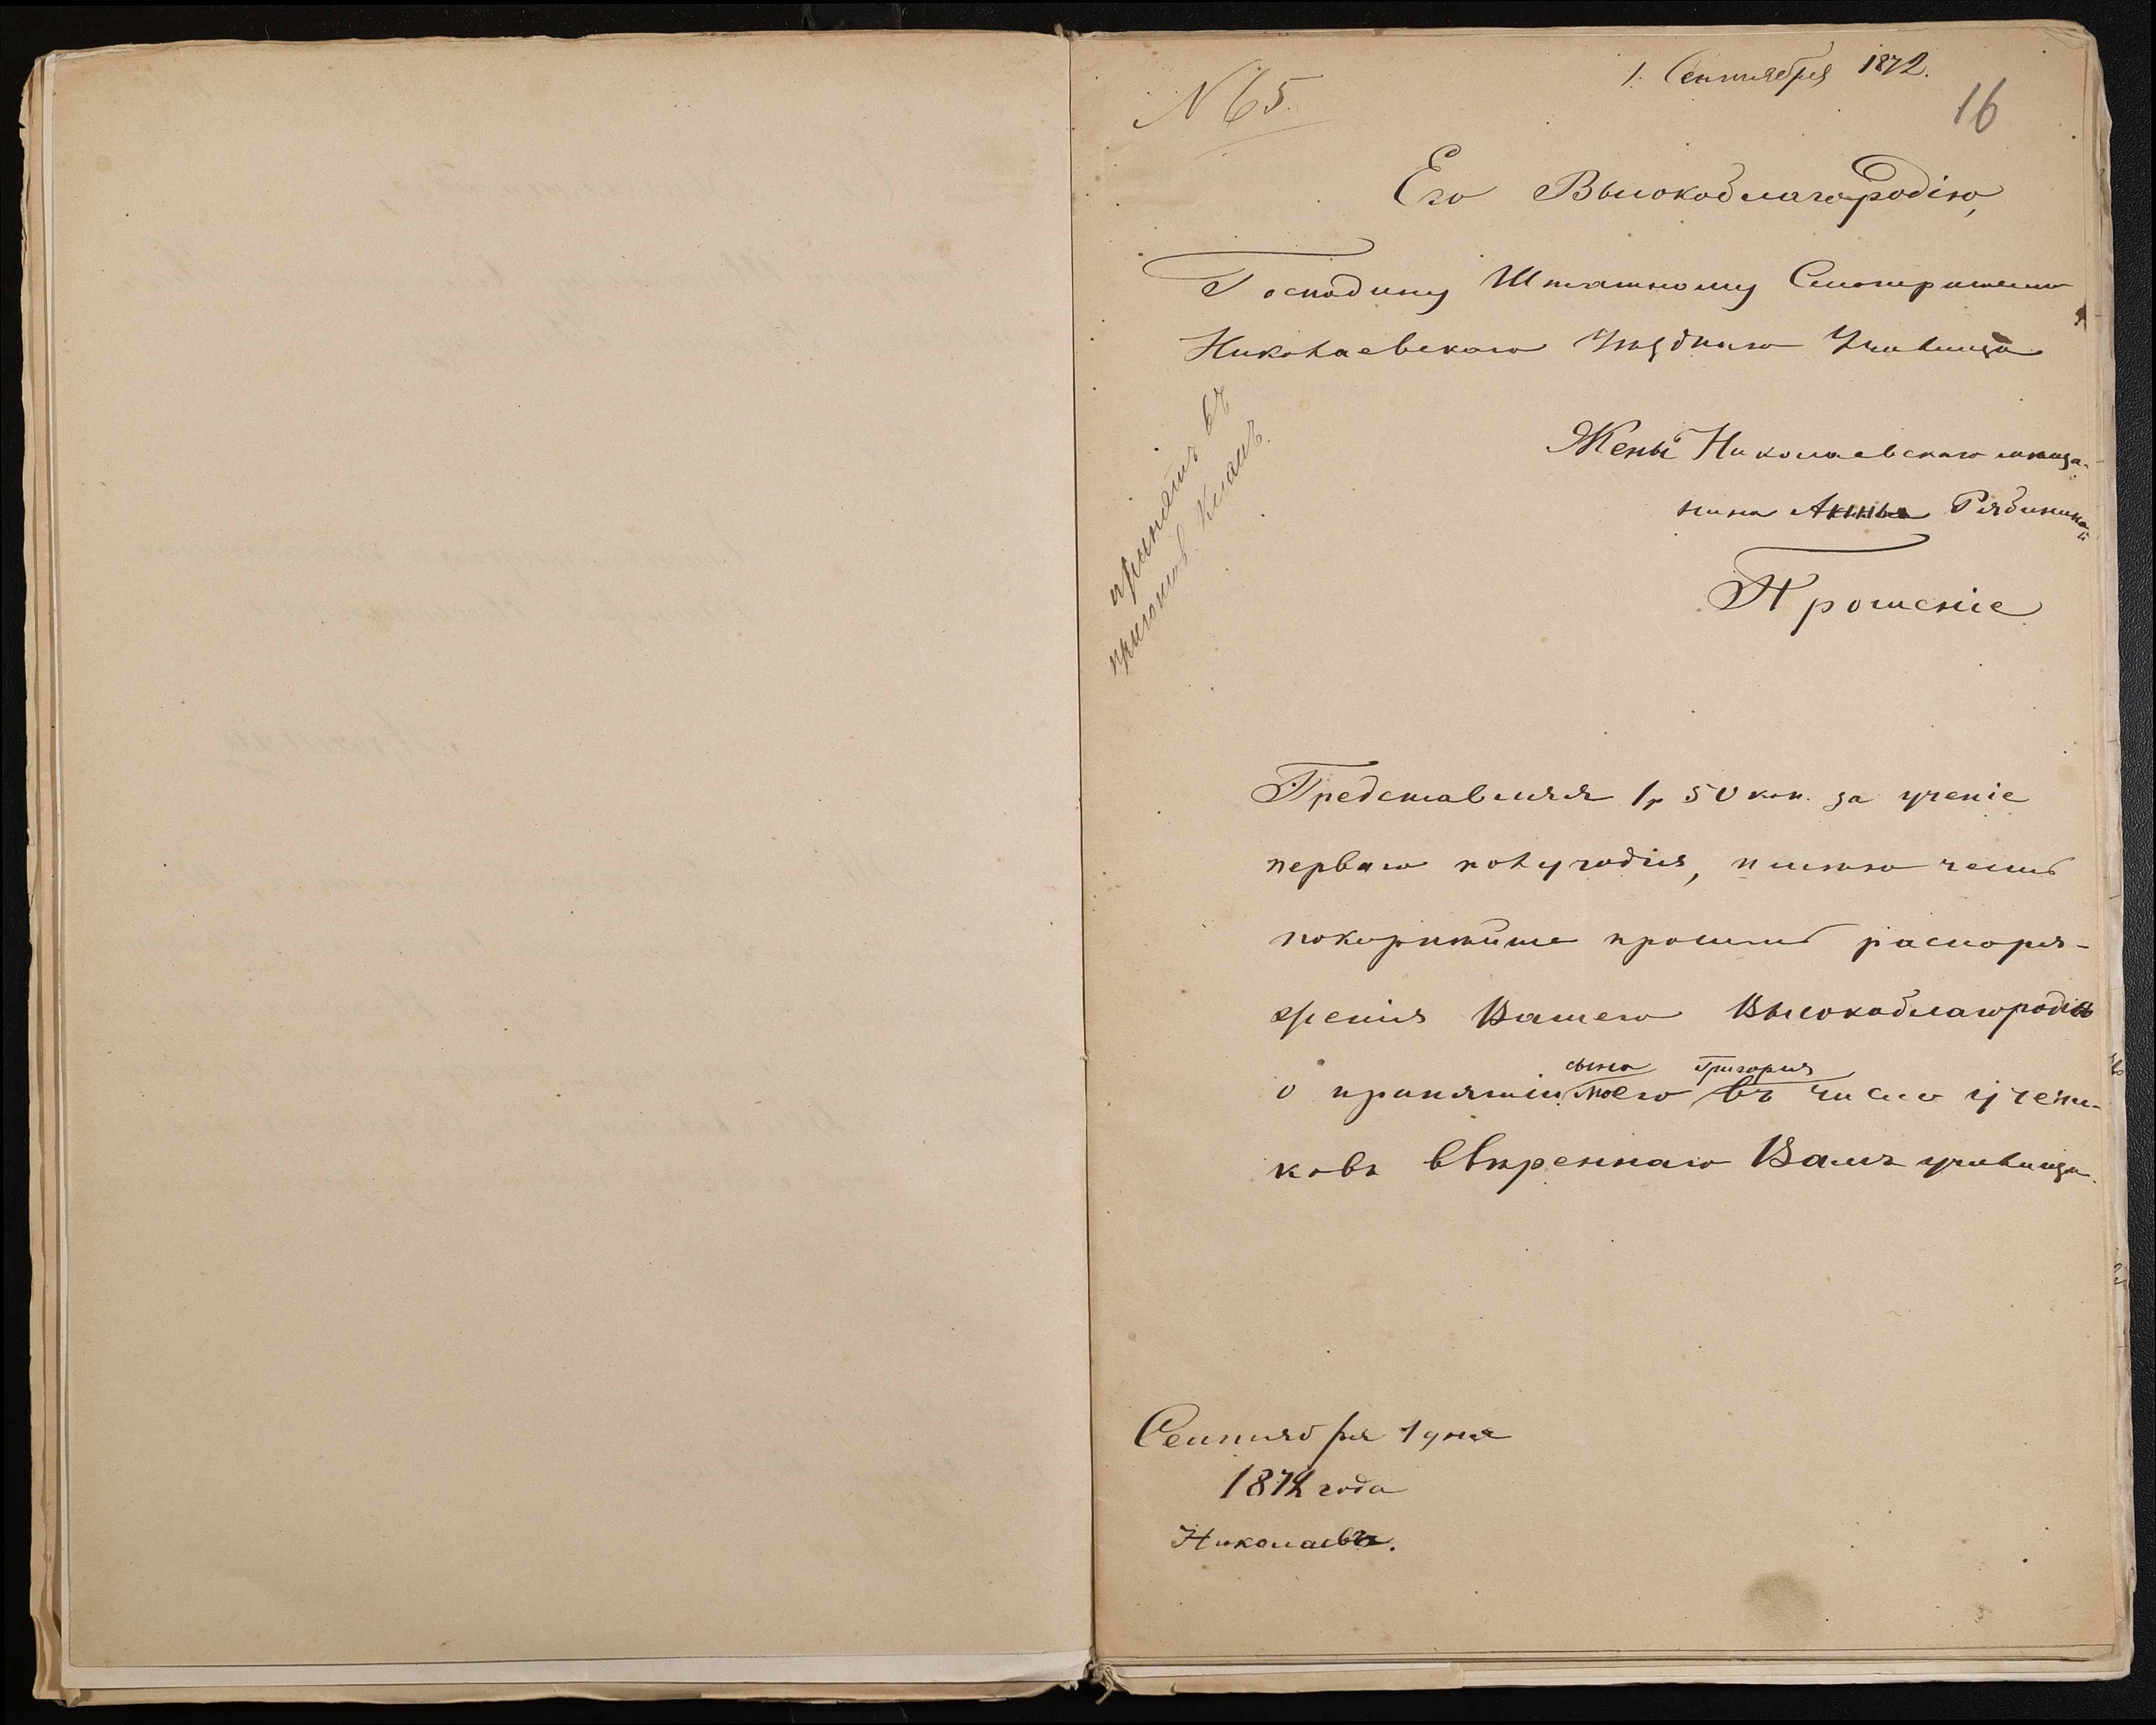 1. Сентября 1872.
№ 65.
16
Его Высокоблагородію,
Господину Штатному Смотрителю
Николаевскаго Уѣзднаго Училища
Жены Николаевскаго мѣща-
нина Рябининой
Прошеніе
принятъ въ
приготов. классъ.
Представляя 1 р 50 коп. за ученіе
перваго полугодія, имѣю честь
покорнѣйше просить распоря-
женія Вашего Высокоблагородія
о принятіи моего сына Григорія въ число учени-
ковъ ввѣреннаго Вамъ училища.
Сентября 1 дня
1872 года
Николаевъ.